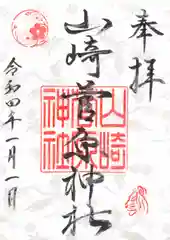 奉拝
山崎菅原神社
山崎
菅原
神社
令和四年一月一日